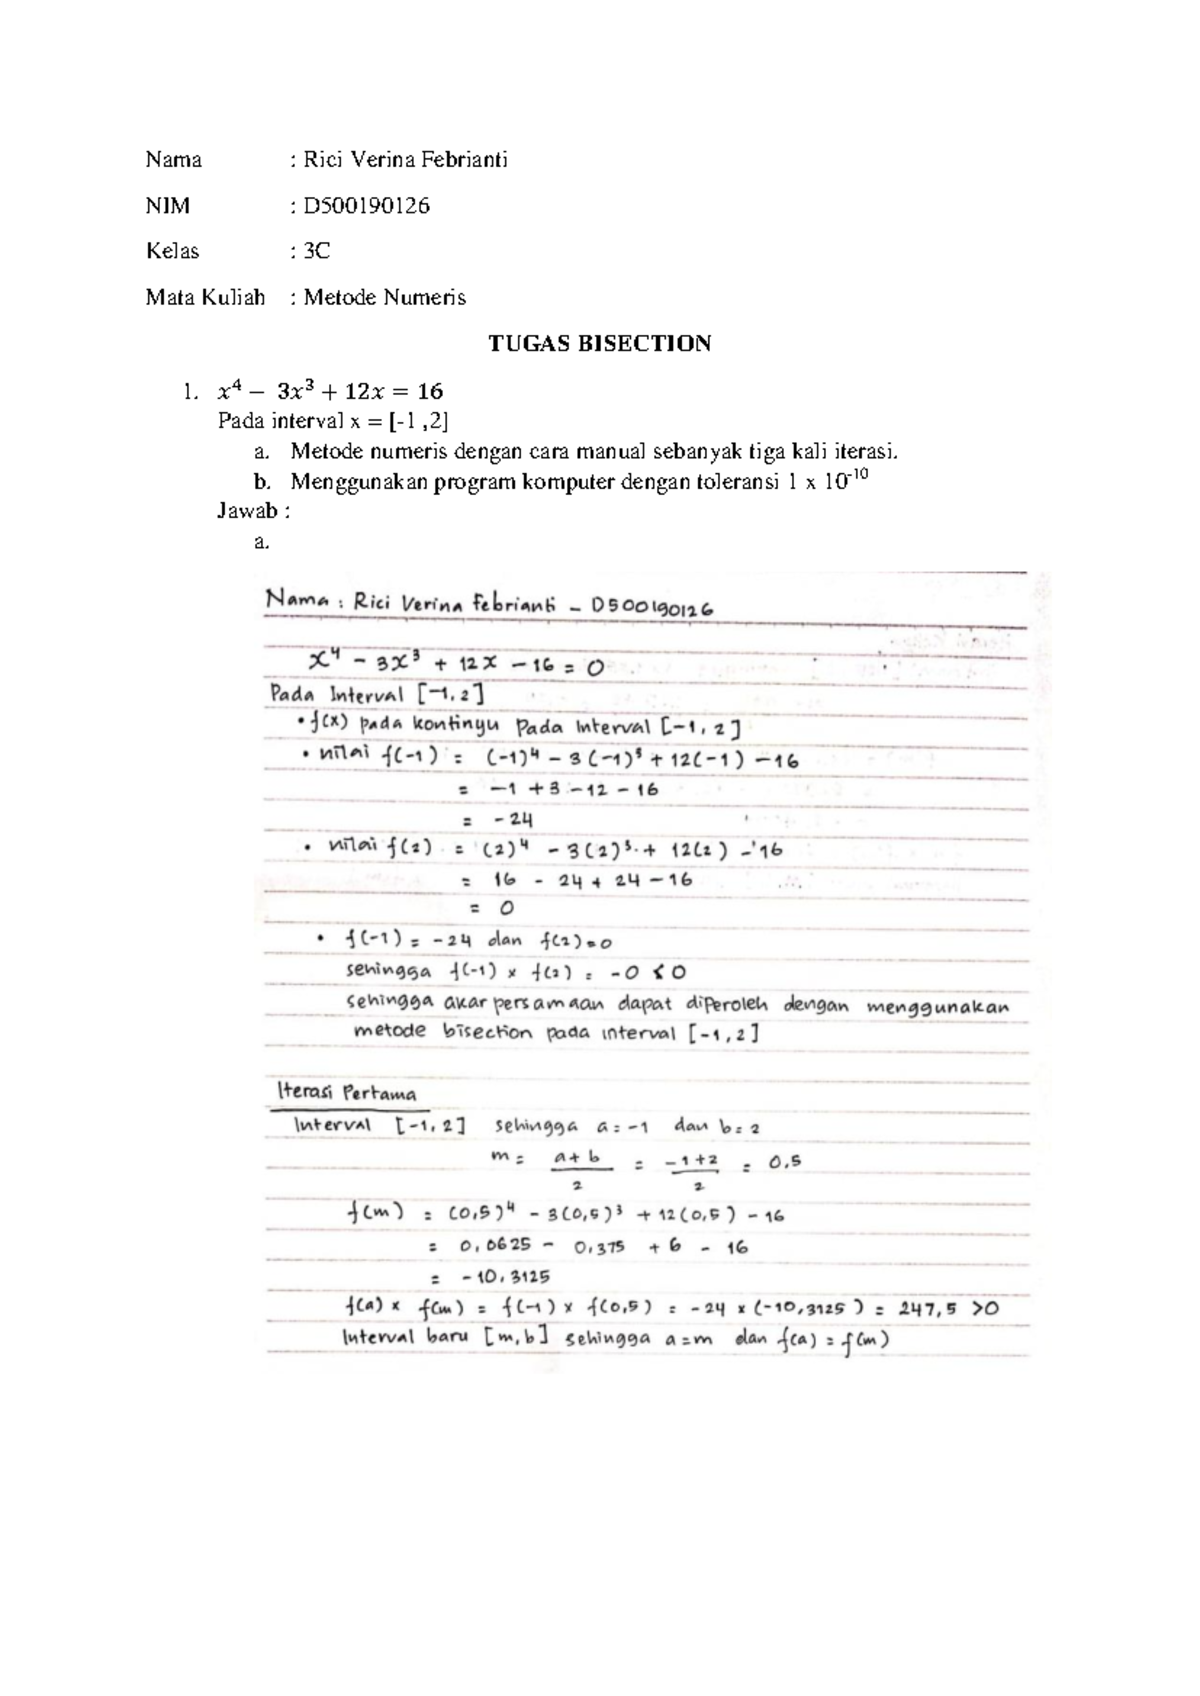 Nama : Rici Verina Febrianti
NIM : D500190126
Kelas : 3C
Mata Kuliah : Metode Numeris
TUGAS BISECTION
1. x⁴ − 3x³ + 12x = 16
Pada interval x = [-1 ,2]
a. Metode numeris dengan cara manual sebanyak tiga kali iterasi.
b. Menggunakan program komputer dengan toleransi 1 x 10⁻¹⁰
Jawab :
a.
Nama : Rici Verina Febrianti - D500190126
x⁴ - 3x³ + 12x - 16 = 0
Pada Interval [-1, 2]
• f(x) pada kontinyu Pada Interval [-1, 2]
• nilai f(-1) = (-1)⁴ - 3(-1)³ + 12(-1) - 16
= -1 + 3 - 12 - 16
= - 24
• nilai f(2) = (2)⁴ - 3(2)³ + 12(2) - 16
= 16 - 24 + 24 - 16
= 0
• f(-1) = -24 dan f(2) = 0
sehingga f(-1) x f(2) = -0 ≤ 0
sehingga akar persamaan dapat diperoleh dengan menggunakan
metode bisection pada interval [-1, 2]
Iterasi Pertama
Interval [-1, 2] sehingga a = -1 dan b = 2
m = a + b / 2 = -1 + 2 / 2 = 0,5
f(m) = (0,5)⁴ - 3(0,5)³ + 12(0,5) - 16
= 0,0625 - 0,375 + 6 - 16
= - 10,3125
f(a) x f(m) = f(-1) x f(0,5) = -24 x (-10,3125) = 247,5 >0
Interval baru [m, b] sehingga a = m dan f(a) = f(m)